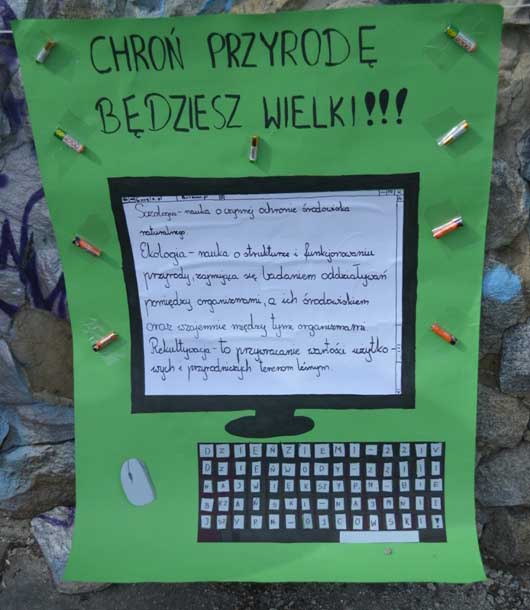 CHROŃ PRZYRODĘ
BĘDZIESZ WIELKI!!!
Sozologia - nauka o czynnej ochronie środowiska
naturalnego
Ekologia - nauka o strukturze i funkcjonowaniu
przyrody, zajmująca się badaniem oddziaływań
pomiędzy organizmami, a ich środowiskiem
oraz wzajemnie między tymi organizmami.
Rekultywacja - to przywracanie wartości użytko-
wych i przyrodniczych terenom leśnym.
DZIEŃZIEMI-22IV
DZIEŃWODY-22III
NAJWIĘKSZYPN-BIE
BRZAŃSKI NAJMNIE
JWYPN-OJCOWSKI!